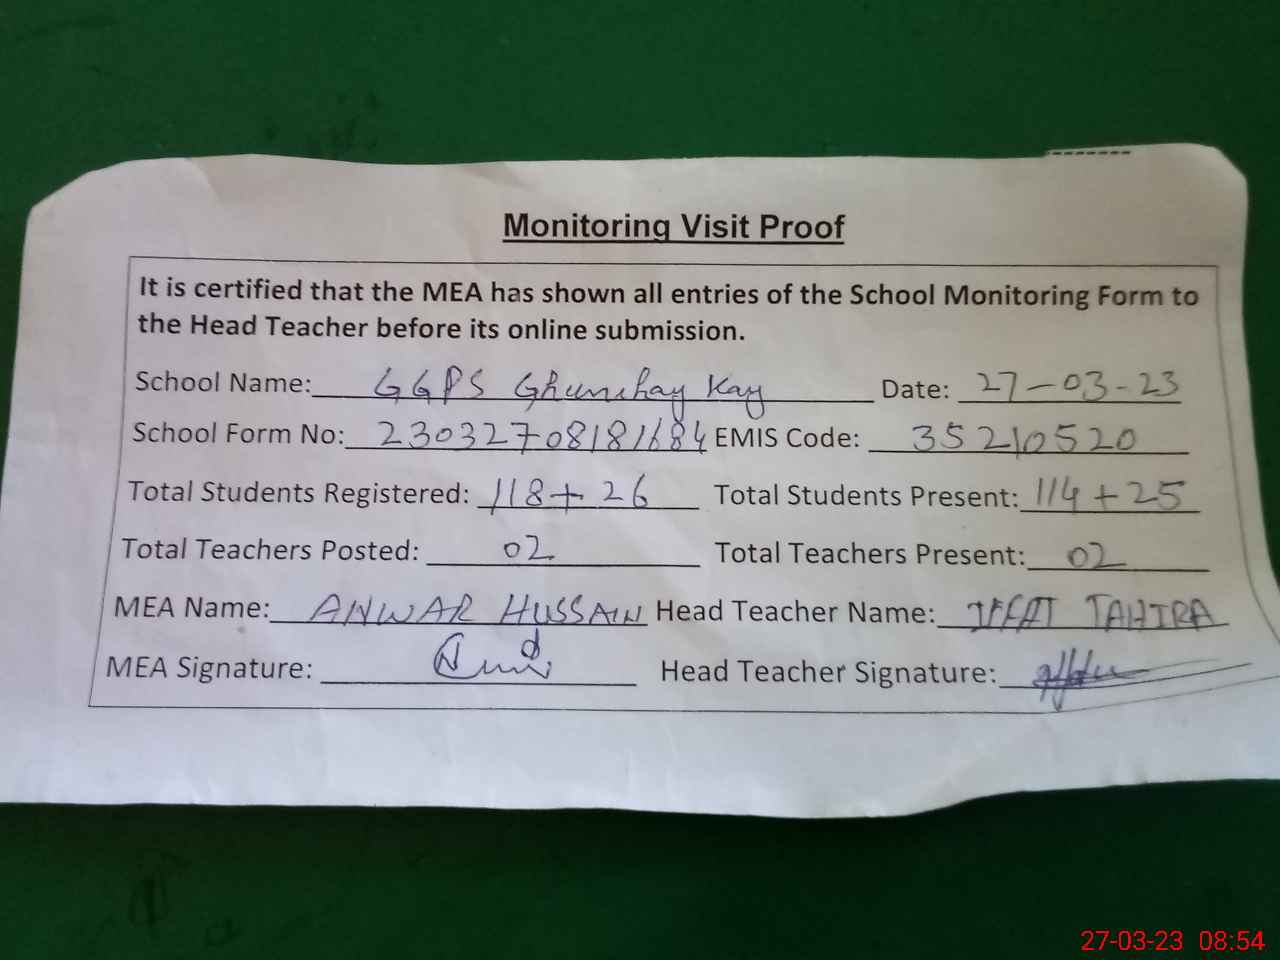 Monitoring Visit Proof
It is certified that the MEA has shown all entries of the School Monitoring Form to
the Head Teacher before its online submission.
School Name: GGPS Ghunchay Kay Date: 27-03-23
School Form No: 23032708181684 EMIS Code: 35210520
Total Students Registered: 118+26 Total Students Present: 114+25
Total Teachers Posted: 02 Total Teachers Present: 02
MEA Name: ANWAR HUSSAIN Head Teacher Name: IFFAT TAHIRA
MEA Signature: Head Teacher Signature:
27-03-23 08:54